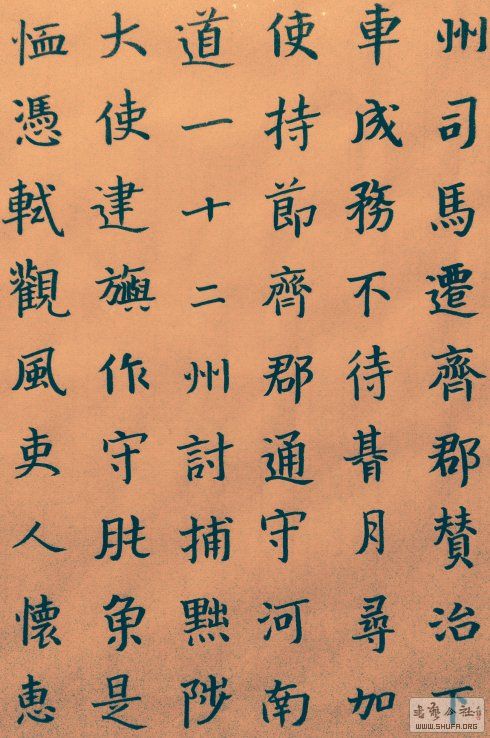 州司馬遷齊郡賛治下
車成務不待朞月尋加
使持節齊郡通守河南
道一十二州討捕黜陟
大使建旟作守是
恤憑軾觀風吏人懷惠
WWW.SHUFA.ORG